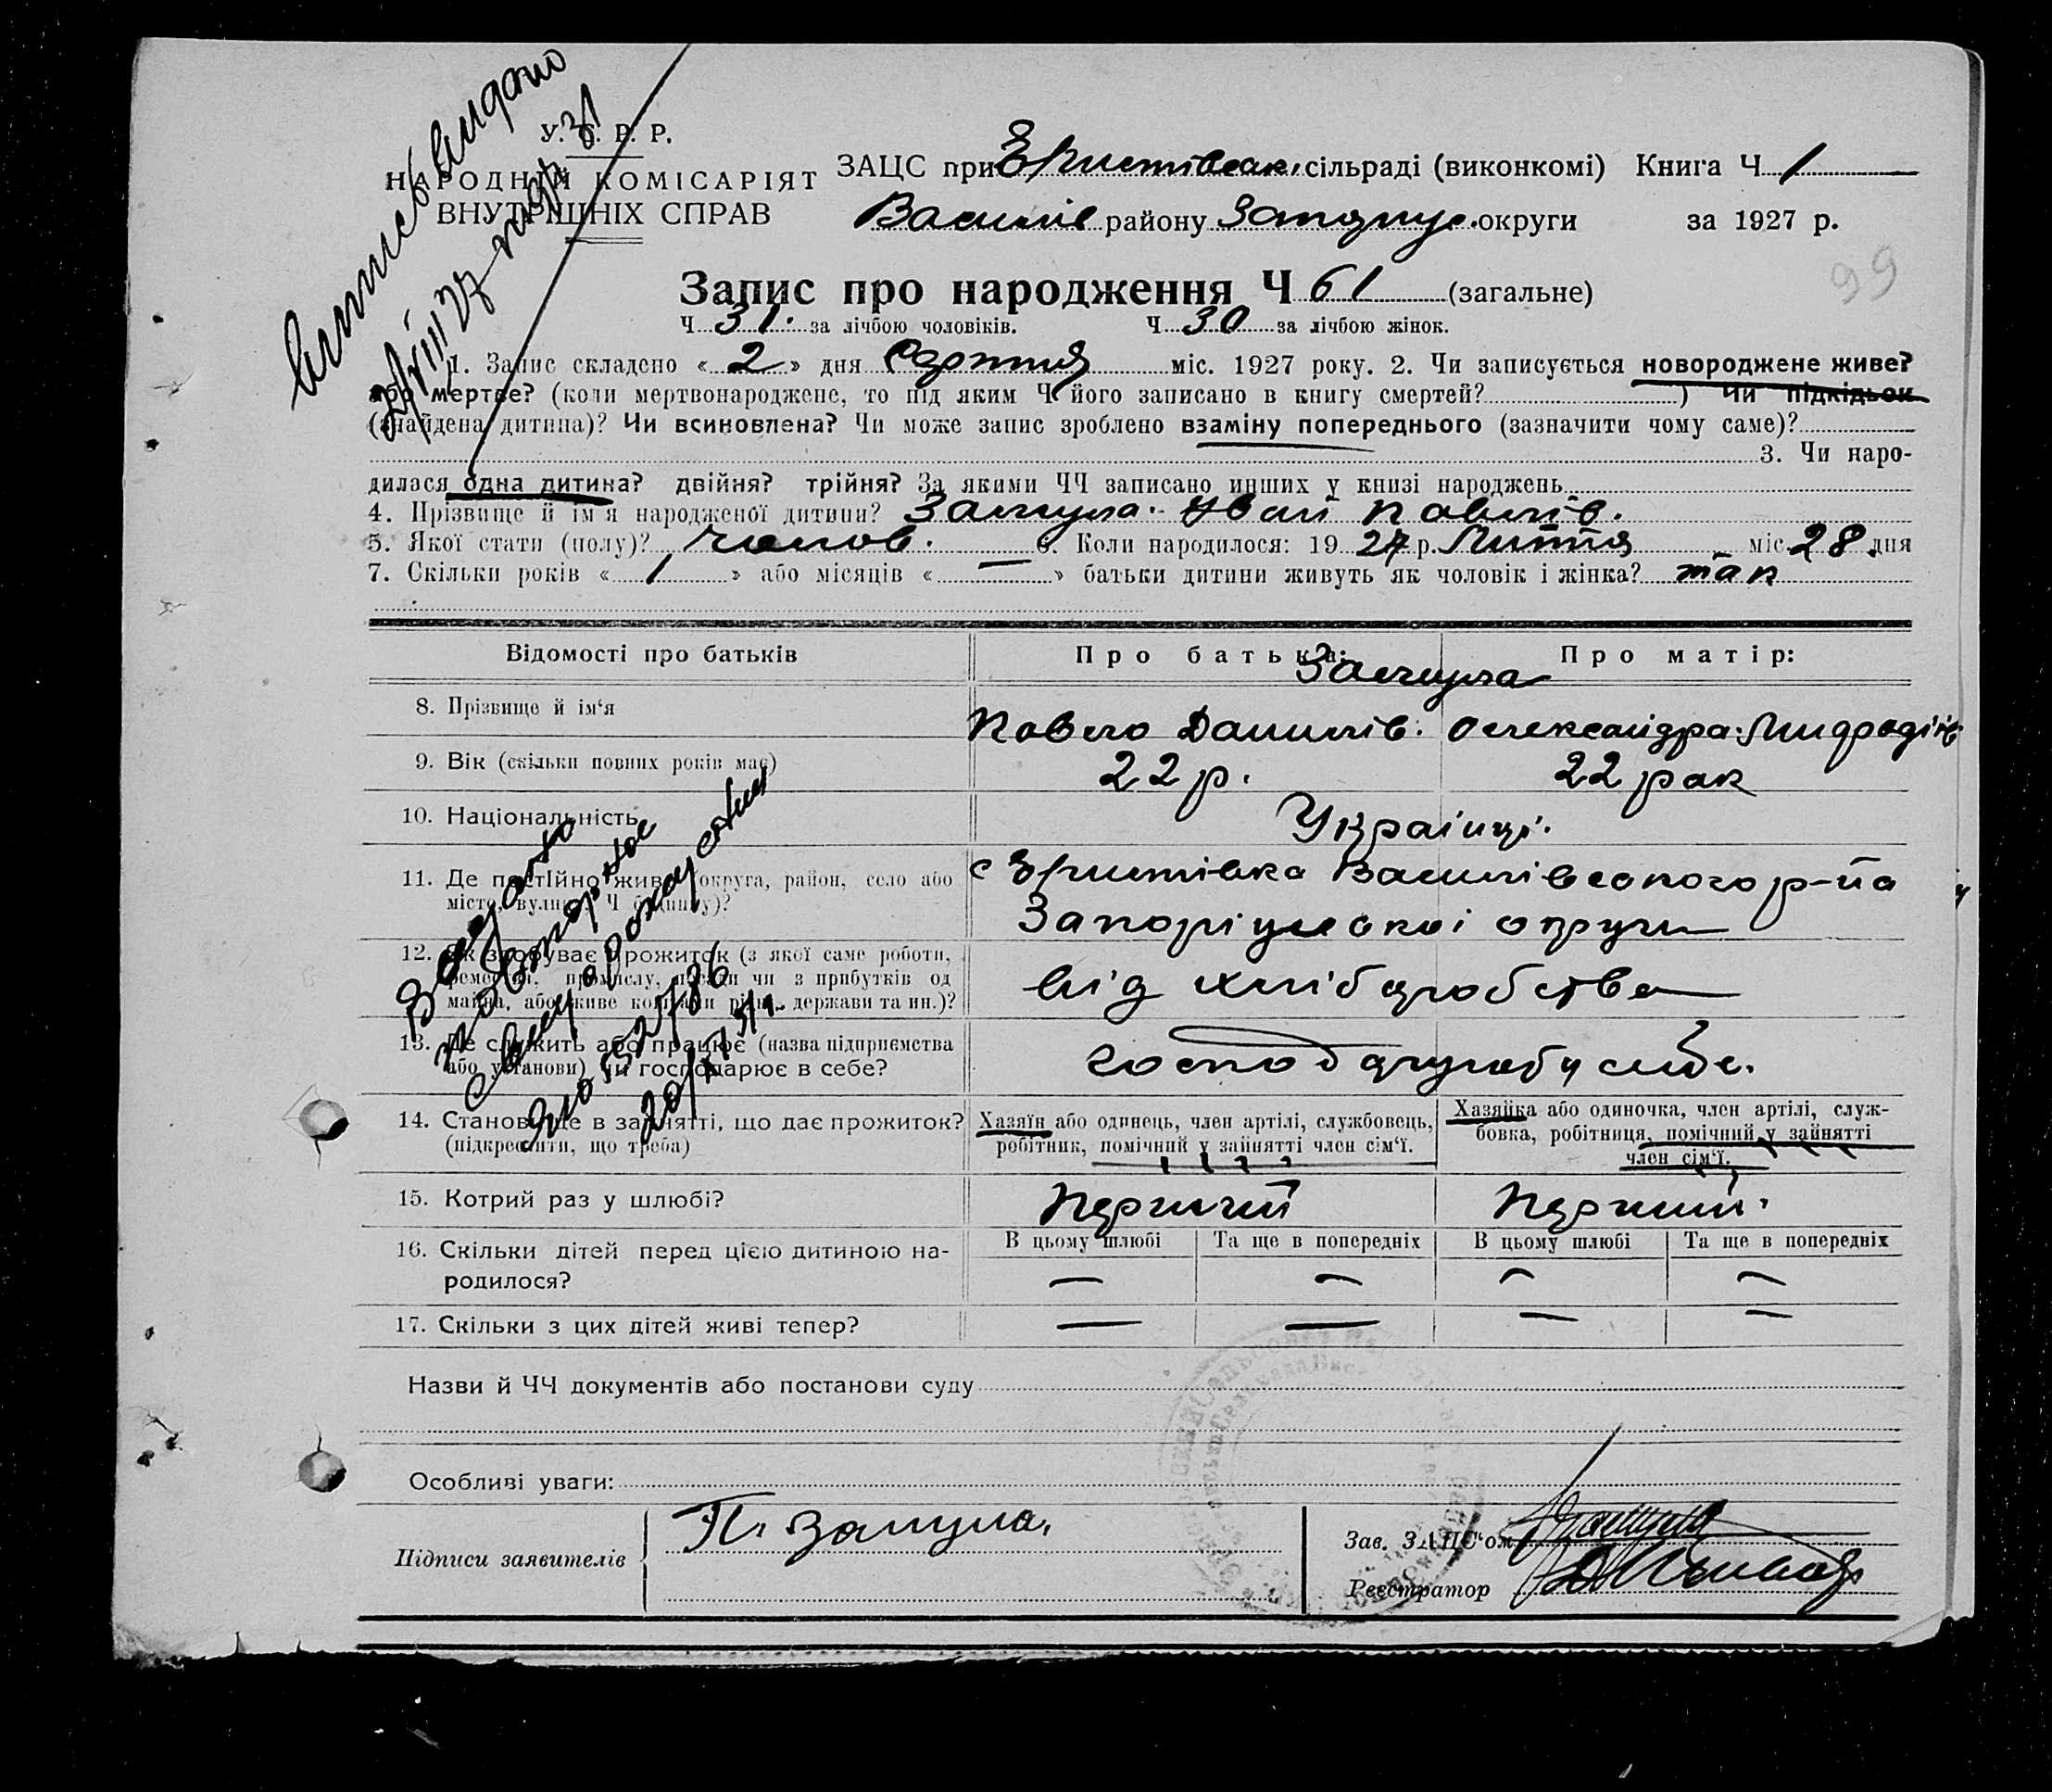 Випись видано
У. С. Р. Р.
НАРОДНИЙ КОМІСАРІЯТ
ВНУТРІШНІХ СПРАВ
ЗАЦС при Еристівськ. сільраді (виконкомі) Книга Ч 1
Василів району Запоріж. округи за 1927 р.
99
Запис про народження Ч 61 (загальне)
Ч 31. за лічбою чоловіків. Ч 30 за лічбою жінок.
1. Запис складено « 2 » дня Серпня міс. 1927 року. 2. Чи записується новороджене живе?
чи мертве? (коли мертвонароджене, то під яким Ч його записано в книгу смертей? ) Чи підкідьок
(знайдена дитина)? Чи всиновлена? Чи може запис зроблено взаміну попереднього (зазначити чому саме)?
3. Чи наро-
дилася одна дитина? двійня? трійня? За якими ЧЧ записано инших у книзі народжень
4. Прізвище й ім'я народженої дитини? Замула. Иван Павлів.
5. Якої стати (полу)? чолов. 6. Коли народилося: 19 27 р. Липня міс. 28 дня
7. Скільки років « 1 » або місяців « — » батьки дитини живуть як чоловік і жінка? так
Відомості про батьків Про батька: Про матір:
Замула
8. Прізвище й ім'я Павло Данилів. Олександра
9. Вік (скільки повних років має) 22 р. 22 рок
10. Національність Українці.
11. Де постійно живе (округа, район, село або с Еристівка Василівського р-на
місто, вулиця, Ч будинку)? Запоріжської округи
12. Як здобуває прожиток (з якої саме роботи,
ремества, промислу, посади чи з прибутків од від хліборобства
майна, або живе коштами рідні, держави та ин.)?
13. Де служить або працює (назва підприємства
або установи) чи господарює в себе? у себе.
14. Становище в занятті, що дає прожиток? Хазяїн або одинець, член артілі, службовець, Хазяйка або одиночка, член артілі, служ-
(підкреслити, що треба) робітник, помічний у зайнятті член сім'ї. бовка, робітниця, помічний у зайнятті
член сім'ї.
15. Котрий раз у шлюбі? Перший Перший.
16. Скільки дітей перед цією дитиною на- В цьому шлюбі Та ще в попередніх В цьому шлюбі Та ще в попередніх
родилося? — — — —
17. Скільки з цих дітей живі тепер? — — — —
Назви й ЧЧ документів або постанови суду
Особливі уваги:
Підписи заявителів П. Замула.
Зав. ЗАЦС'ом
Реєстратор